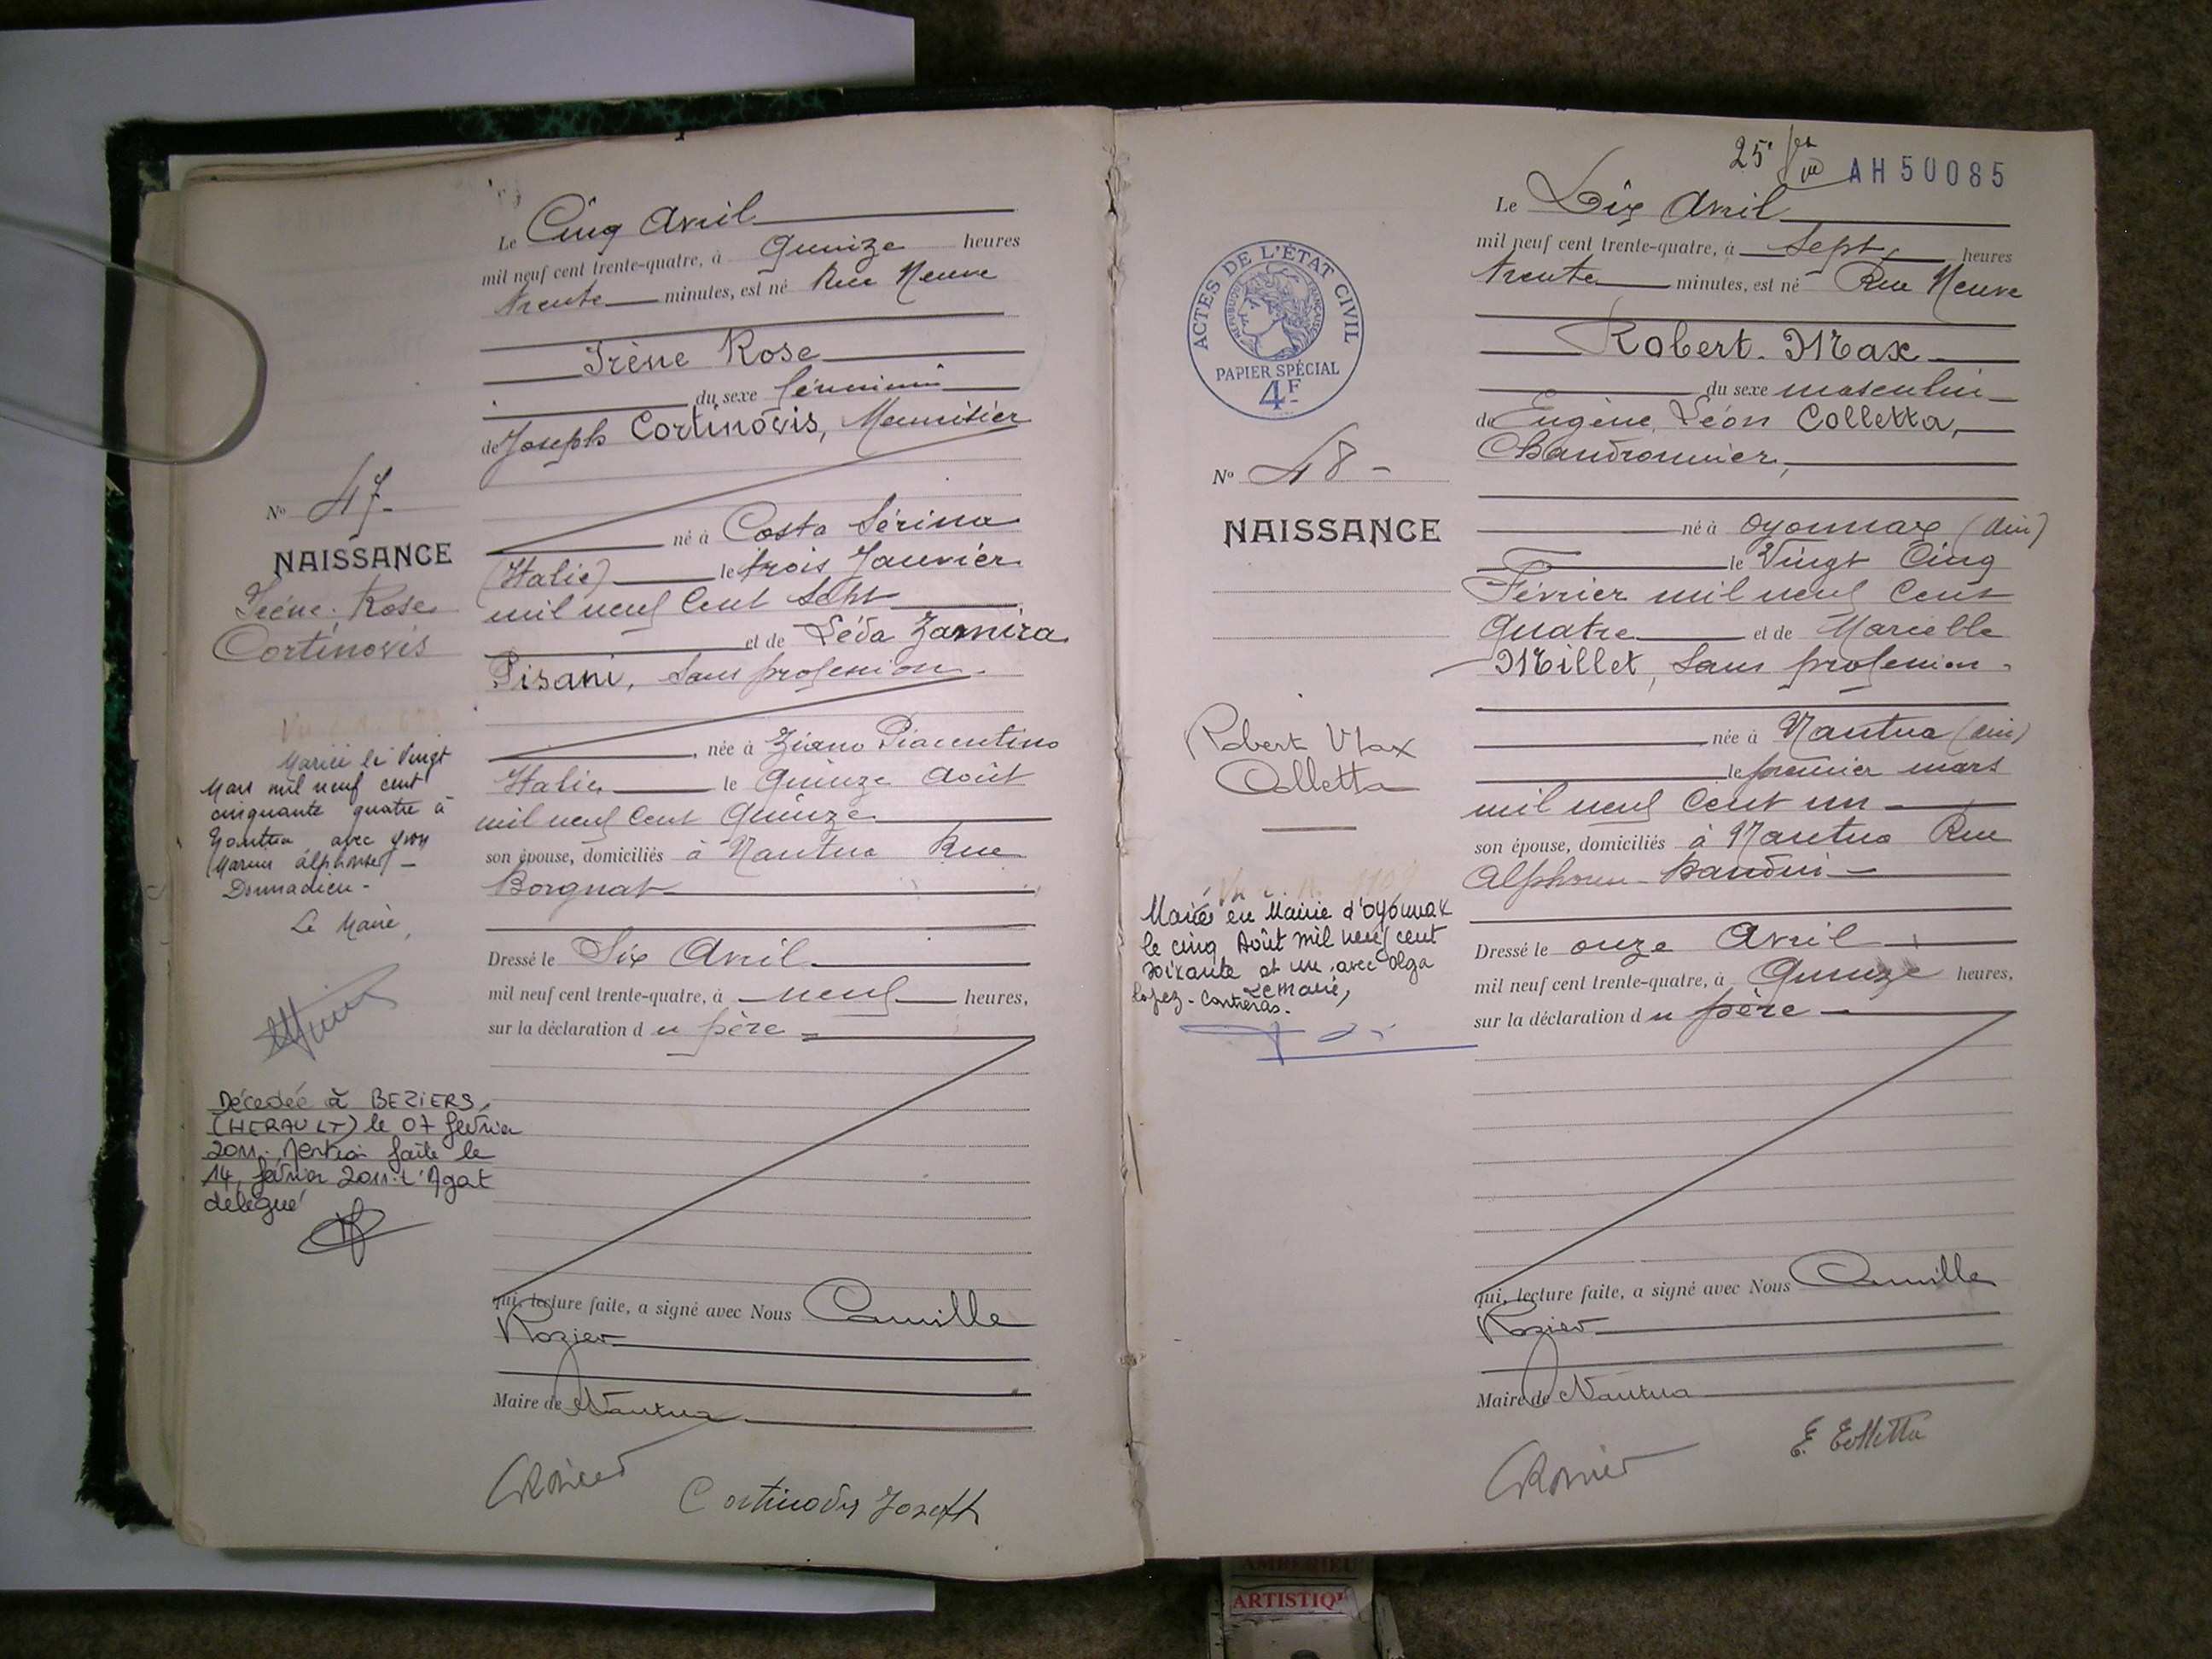 Le Cinq Avril
mil neuf cent trente-quatre, à Quinze heures
trente minutes, est né Rue Neuve
Irène Rose
du sexe féminin
de Joseph Cortinovis, Menuisier
né à Costa Sérina
(Italie) le trois Janvier
mil neuf Cent Sept
et de Léda Zamira
Pisani, Sans profession.
née à Ziano Piacentino
Italie le Quinze Août
mil neuf Cent Quinze
son épouse, domiciliés à Nantua Rue
Borgnat
Dressé le Six Avril
mil neuf cent trente-quatre, à neuf heures,
sur la déclaration du père
qui, lecture faite, a signé avec Nous Camille
Rozier
Maire de Nantua
CRozier
Cortinovis Joseph
No 47-
NAISSANCE
Irène. Rose
Cortinovis
Mariée le Vingt
Mars mil neuf cent
cinquante quatre à
Nantua avec Yvon
(Marius Alphonse) -
Donnadieu -
Le Maire,
Décédée à BEZIERS
(HERAULT) le 07 février
2011. Mention faite le
14 février 2011. L'Agat
délégué
25e
AH 50085
Le Dix Avril
mil neuf cent trente-quatre, à Sept heures
trente minutes, est né Rue Neuve
Robert. Max
du sexe masculin
de Eugène, Léon Colletta,
Chaudronnier,
né à Oyonnax (Ain)
le Vingt Cinq
Février mil neuf Cent
Quatre et de Marcelle
Millet, Sans profession.
née à Nantua (Ain)
le premier mars
mil neuf Cent un
son épouse, domiciliés à Nantua Rue
Alphonse Baudin
Dressé le onze Avril
mil neuf cent trente-quatre, à Quinze heures,
sur la déclaration du père
qui, lecture faite, a signé avec Nous Camille
Rozier
Maire de Nantua
CRozier
E. Colletta
ACTES DE L'ÉTAT CIVIL
RÉPUBLIQUE FRANÇAISE
PAPIER SPÉCIAL
4F
No 48 -
NAISSANCE
Robert Max
Colletta
Marié en Mairie d'Oyonnax
le cinq Août mil neuf cent
soixante et un avec Olga
Lopez-Contreras.
Le Maire,
ARTISTIQ